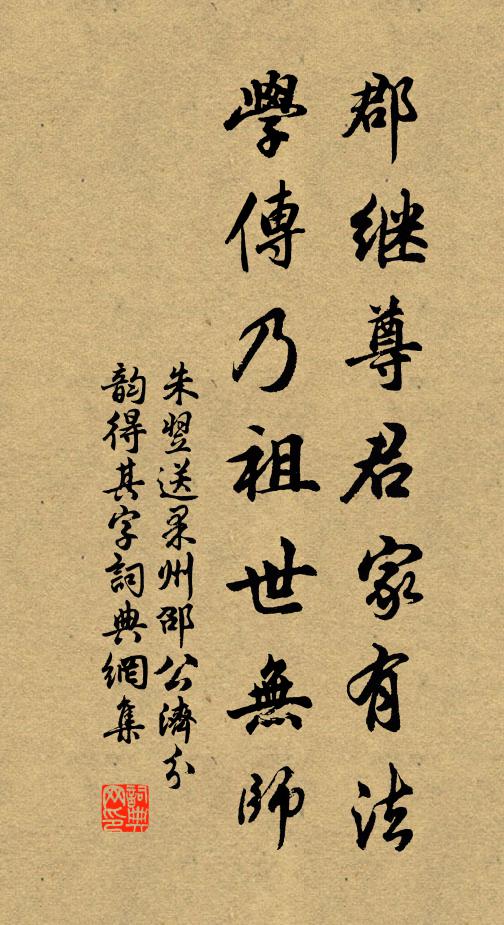 郡继尊君家有法
學傳乃祖世無師
朱翌送果州邵公濟分
韵得其字詞典網集
詞典网印